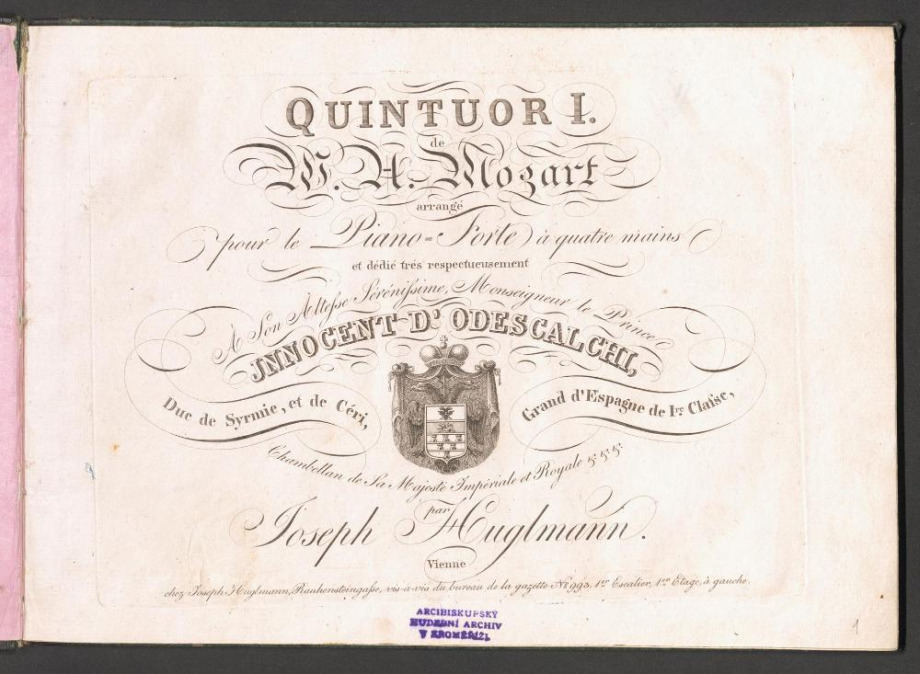 QUINTUOR I.
de
W. A. Mozart
arrangé
pour le Piano=Forte à quatre mains
et dédié trés respectueusement
A Son Altesse Sérénissime, Monseigneur le Prince
JNNOCENT D'ODESCALCHI,
Duc de Syrmie, et de Céri,
Grand d'Espagne de I.re Classe,
Chambellan de Sa Majesté Impériale et Royale &. &. &.
par
Joseph Huglmann.
Vienne
chez Joseph Huglmann, Rauhensteingasse, vis-à-vis du bureau de la gazette No 993, 1er Escalier, 1er Etage, à gauche.
ARCIBISKUPSKÝ
HUDEBNÍ ARCHIV
V KROMĚŘÍŽI
1